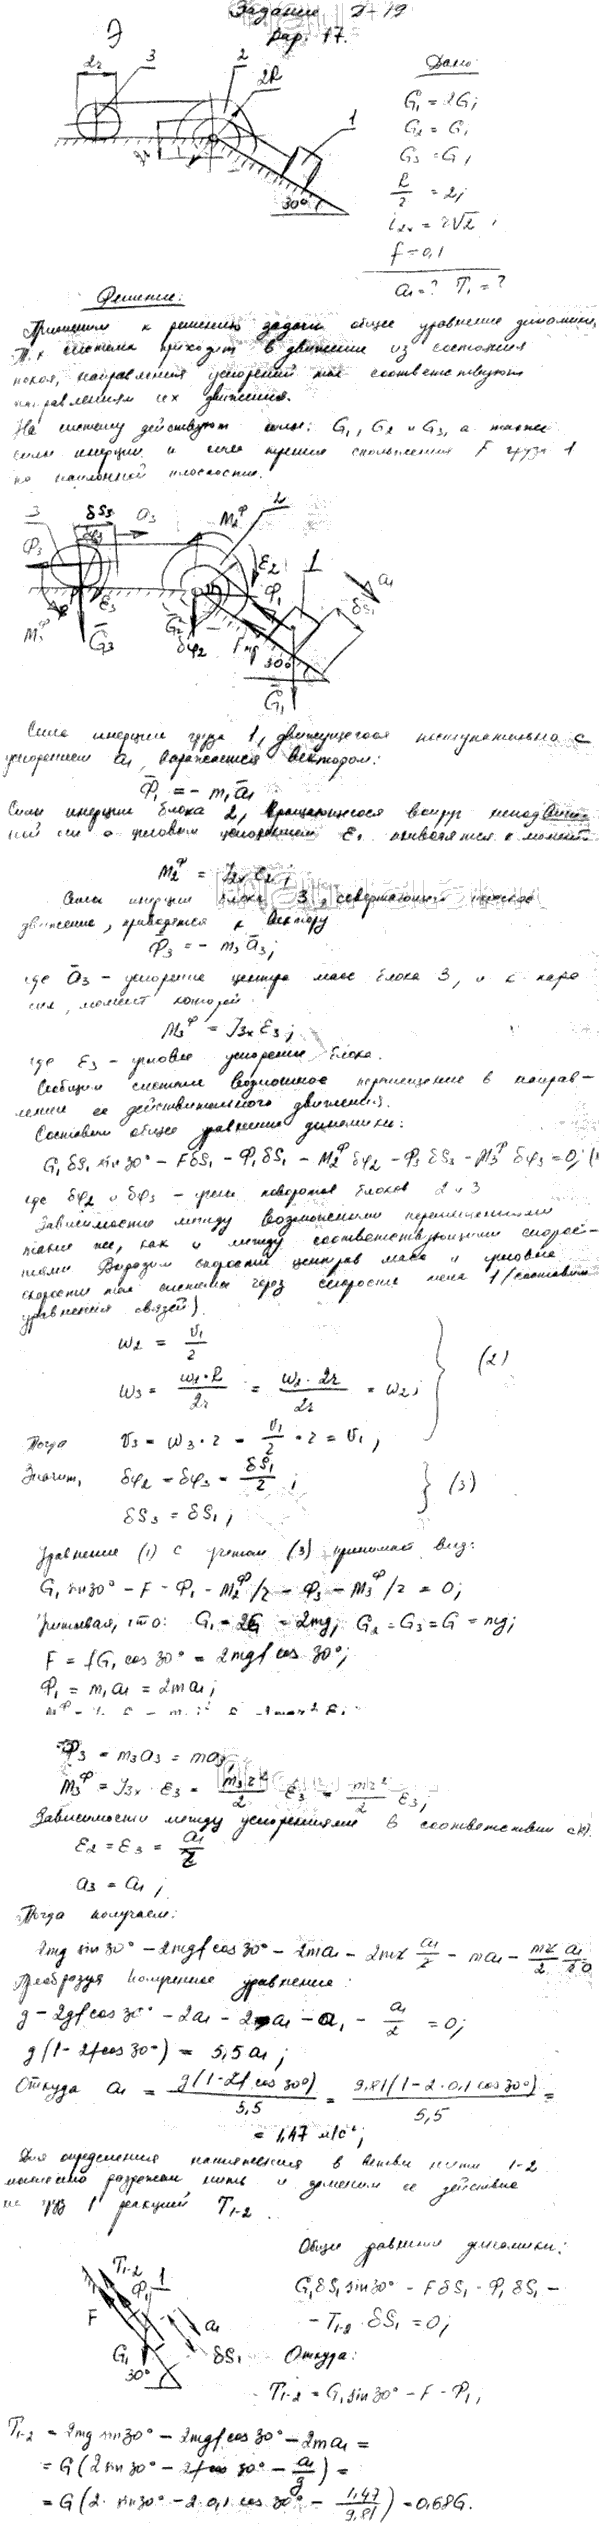 Задание Д-19
Вар. 17.
Дано:
G₁ = 2G;
G₂ = G;
G₃ = G;
R/r = 2;
i₂ₓ = r√2;
f = 0,1
a₁ = ? T₁ = ?
2r 3 2 2R 1
30°
Решение:
Применим к решению задачи общее уравнение динамики,
Т.к система приходит в движение из состояния
покоя, направления ускорений тел соответствуют
направлениям их движения.
На систему действуют силы: G₁, G₂ и G₃, а также
силы инерции и сила трения скольжения F груза 1
по наклонной плоскости.
3 δS₃ a₃ M₂ᶲ 2
Φ₃ δφ₃ ε₃ ε₂ Φ₁ 1 a₁ δS₁
M₃ᶲ G₃ G₂ δφ₂ Fтр 30° G₁
Сила инерции груза 1, движущегося поступательно с
ускорением a₁, выражается вектором:
Φ̄₁ = – m₁ā₁
Силы инерции блока 2, вращающегося вокруг неподвиж-
ной оси с угловым ускорением ε₁ приводятся к момент
M₂ᶲ = J₂ₓ ε₂;
Силы инерции блока 3, совершающего плоское
движение, приводятся к вектору
Φ̄₃ = – m₃ā₃;
где ā₃ – ускорение центра масс блока 3, и к паре
сил, момент которой
M₃ᶲ = J₃ₓ ε₃;
где ε₃ – угловое ускорение блока.
Сообщим системе возможное перемещение в направ-
лении ее действительного движения.
Составим общее уравнение динамики:
G₁δS₁ sin30° – FδS₁ – Φ₁δS₁ – M₂ᶲδφ₂ – Φ₃δS₃ – M₃ᶲδφ₃ = 0; (1
где δφ₂ и δφ₃ – углы поворотов блоков 2 и 3
Зависимости между возможными перемещениями
такие же, как и между соответствующими скорос-
тями. Выразим скорости центров масс и угловые
скорости тел системы через скорость тела 1 (составим
уравнения связей).
ω₂ = v₁/r
ω₃ = ω₂·R/2r = ω₂·2r/2r = ω₂; (2)
Тогда v₃ = ω₃·r = v₁/r · r = v₁;
Значит, δφ₂ = δφ₃ = δS₁/r;
δS₃ = δS₁; (3)
Уравнение (1) с учетом (3) принимает вид:
G₁ sin30° – F – Φ₁ – M₂ᶲ/r – Φ₃ – M₃ᶲ/r = 0;
Учитывая, что: G₁ = 2G = 2mg; G₂ = G₃ = G = mg;
F = fG₁ cos30° = 2mgf cos30°;
Φ₁ = m₁a₁ = 2ma₁;
Φ₃ = m₃a₃ = ma₃
M₃ᶲ = J₃ₓ·ε₃ = m₃r²/2 ε₃ = mr²/2 ε₃;
Зависимости между ускорениями в соответствии с
ε₂ = ε₃ = a₁/r
a₃ = a₁;
Тогда получаем:
2mg sin30° – 2mgf cos30° – 2ma₁ – 2mr a₁/r – ma₁ – mr/2 a₁/r = 0
Преобразуя полученное уравнение:
g – 2gf cos30° – 2a₁ – 2a₁ – a₁ – a₁/2 = 0;
g(1–2f cos30°) = 5,5a₁;
Откуда a₁ = g(1–2f cos30°)/5,5 = 9,81(1–2·0,1 cos30°)/5,5 =
= 1,47 м/с²;
Для определения натяжения в ветви нити 1-2
мысленно разрежем нить и заменим ее действие
на груз 1 реакцией T₁₋₂.
T₁₋₂ Φ₁ 1 F a₁ δS₁ G₁ 30°
Общее уравнение динамики:
G₁δS₁ sin30° – FδS₁ – Φ₁δS₁ –
– T₁₋₂·δS₁ = 0;
Откуда:
T₁₋₂ = G₁ sin30° – F – Φ₁;
T₁₋₂ = 2mg sin30° – 2mgf cos30° – 2ma₁ =
= G(2sin30° – 2f cos30° – a₁/g) =
= G(2·sin30° – 2·0,1 cos30° – 1,47/9,81) = 0,68G.